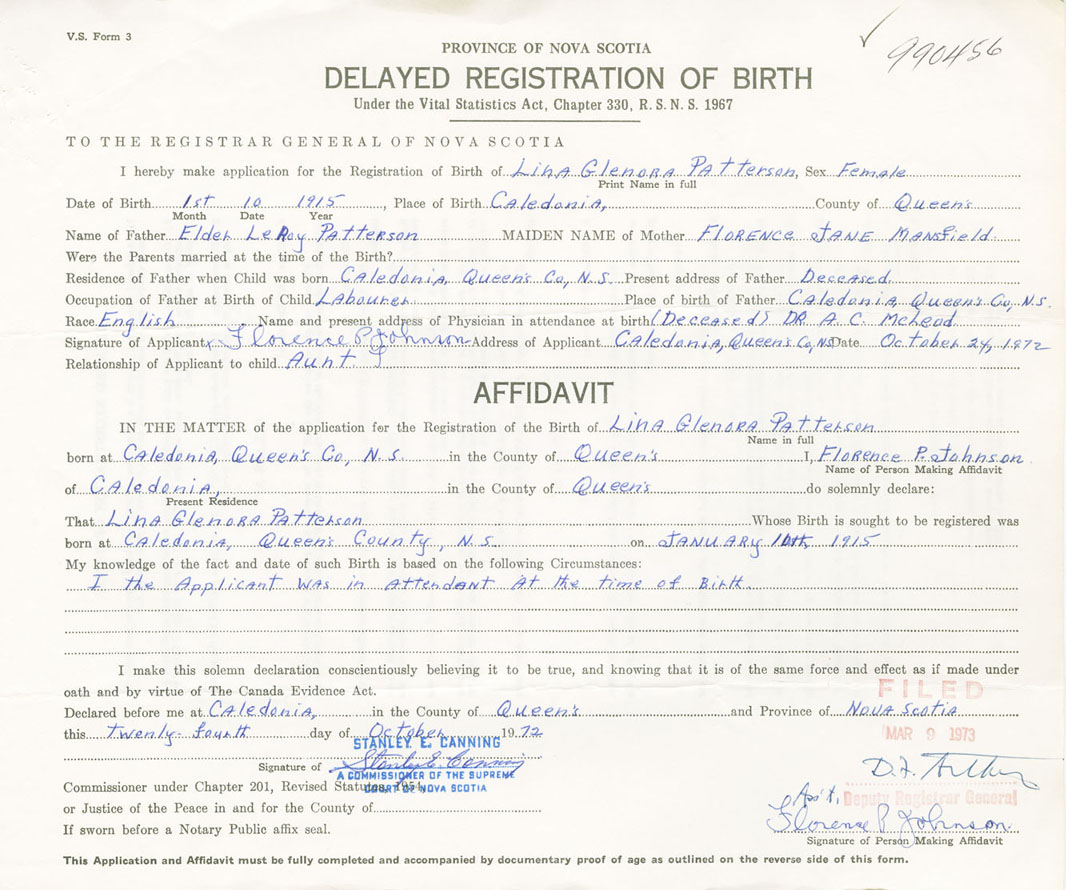 V.S. Form 3
990456
PROVINCE OF NOVA SCOTIA
DELAYED REGISTRATION OF BIRTH
Under the Vital Statistics Act, Chapter 330, R. S. N. S. 1967
TO THE REGISTRAR GENERAL OF NOVA SCOTIA
I hereby make application for the Registration of Birth of Lina Glenora Patterson, Sex Female
Print Name in full
Date of Birth 1st 10 1915, Place of Birth Caledonia, County of Queen's
Month Date Year
Name of Father Elder LeRoy Patterson MAIDEN NAME of Mother Florence Jane Mansfield
Were the Parents married at the time of the Birth?
Residence of Father when Child was born Caledonia Queen's Co, N.S. Present address of Father Deceased
Occupation of Father at Birth of Child Labourer Place of birth of Father Caledonia, Queen's Co, N.S.
Race English Name and present address of Physician in attendance at birth (Deceased) DR A. C. McLeod
Signature of Applicant x Florence P Johnson Address of Applicant Caledonia, Queen's Co, NS Date October 24, 1972
Relationship of Applicant to child Aunt
AFFIDAVIT
IN THE MATTER of the application for the Registration of the Birth of Lina Glenora Patterson
Name in full
born at Caledonia, Queen's Co, N.S. in the County of Queen's I, Florence P. Johnson
Name of Person Making Affidavit
of Caledonia, in the County of Queen's do solemnly declare:
Present Residence
That Lina Glenora Patterson Whose Birth is sought to be registered was
born at Caledonia, Queen's County, N.S. on January 10th, 1915
My knowledge of the fact and date of such Birth is based on the following Circumstances:
I the Applicant was in attendant at the time of Birth
I make this solemn declaration conscientiously believing it to be true, and knowing that it is of the same force and effect as if made under
oath and by virtue of The Canada Evidence Act.
FILED
Declared before me at Caledonia, in the County of Queen's and Province of Nova Scotia
this Twenty-fourth day of October 1972
MAR 9 1973
STANLEY E. CANNING
Signature of Stanley E Canning
A COMMISSIONER OF THE SUPREME
Commissioner under Chapter 201, Revised Statutes, 1954
COURT OF NOVA SCOTIA
Ass't. Deputy Registrar General
or Justice of the Peace in and for the County of
Florence P Johnson
If sworn before a Notary Public affix seal.
Signature of Person Making Affidavit
This Application and Affidavit must be fully completed and accompanied by documentary proof of age as outlined on the reverse side of this form.